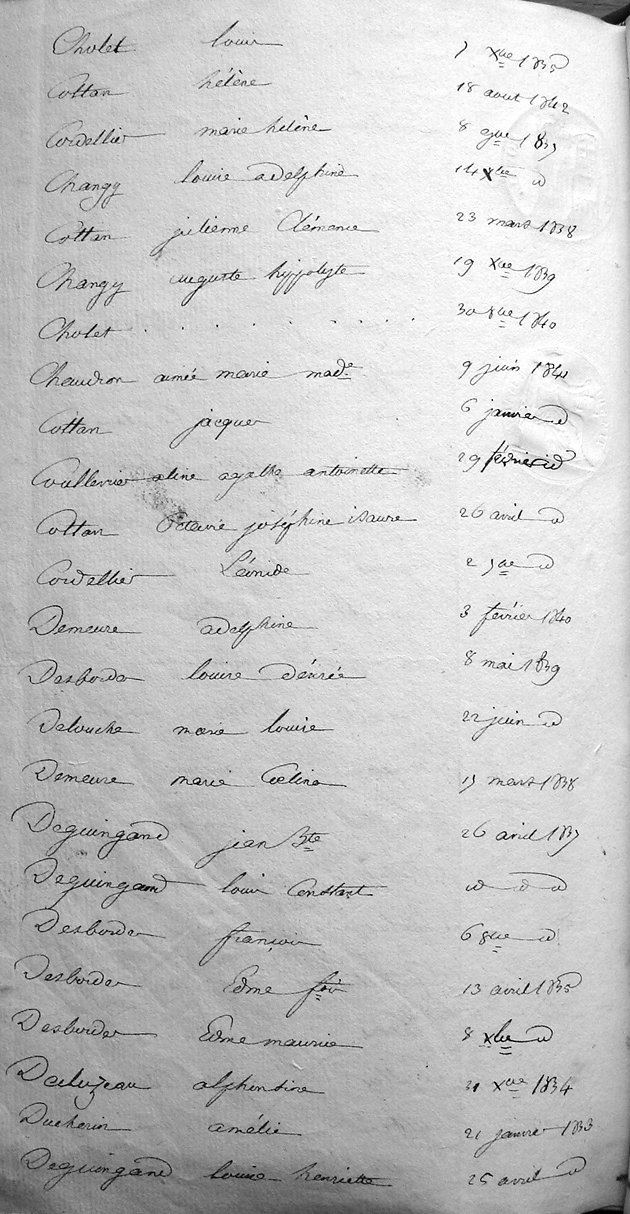 Cholet louis 7 Xbre 1835
Cottan hélène 18 aout 1842
Cordellier marie hélène 8 9bre 1837
Changy louise adelphine 14 Xbre id
Cottan julienne Clémence 23 mars 1838
Changy auguste hyppolyte 19 Xbre 1839
Cholet . . . . . . . 30 8bre 1840
Chaudron aimée marie made 9 juin 1841
Cottan jacques 6 janvier id
Coullerier aline agathe antoinette 29 février id
Cottan Octavie joséphine isaure 26 avril id
Cordellier Léonide 2 7bre id
Demeure adelphine 3 février 1840
Desbordes louise désirée 8 mai 1839
Delouche marie louise 22 juin id
Demeure marie Celina 17 mars 1838
Deguingand jean Bte 26 avril 1837
Deguingand louis Constant id id id
Desbordes françois 6 8bre id
Desbordes Edme fois 13 avril 1835
Desbordes Edme maurice 8 Xbre id
Daluzeau alphonsine 21 Xbre 1834
Ducherin amélie 21 janvier 1833
Deguingand louise henriette 25 avril id